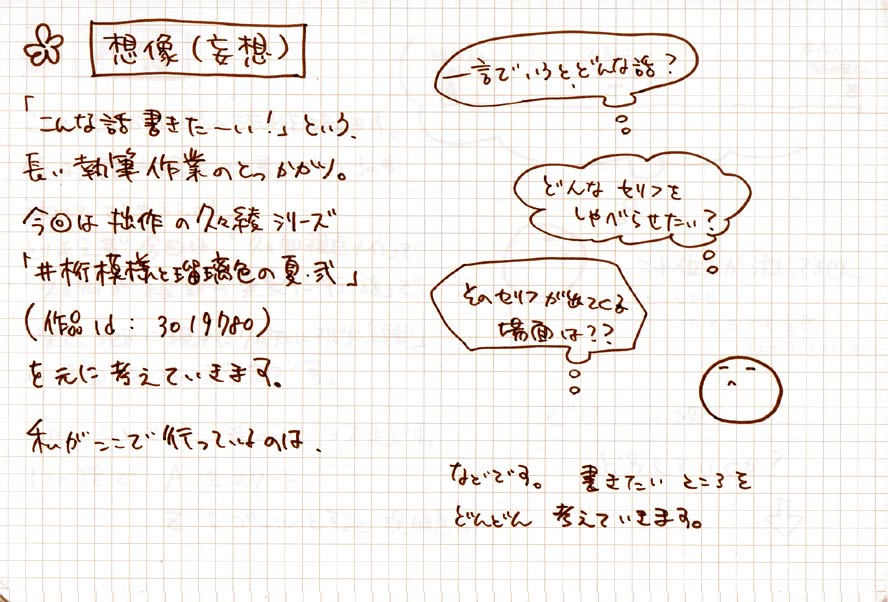 想像(妄想)
「こんな話書きたーい!」という、
長い執筆作業のとっかかり。
今回は拙作の久々綾シリーズ
「井桁模様と瑠璃色の夏・弐」
(作品id: 3019780)
を元に考えていきます。
私がここで行っているのは、
一言でいうと、どんな話?
どんなセリフを
しゃべらせたい?
そのセリフが出てくる
場面は??
などです。書きたいところを
どんどん考えていきます。